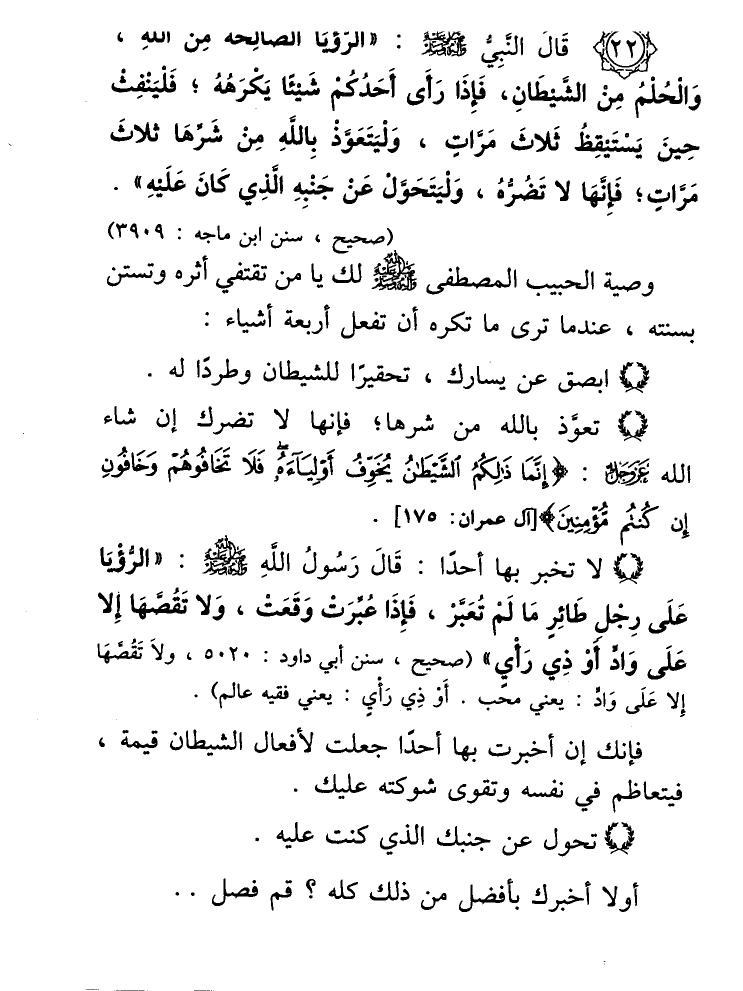 ٢٢ قَالَ النَّبِيُّ ﷺ : «الرُّؤْيَا الصَّالِحَة مِن اللَّهِ ،
وَالْحُلْمُ مِنْ الشَّيْطَانِ، فَإِذَا رَأَى أَحَدُكُمْ شَيْئًا يَكْرَهُهُ ؛ فَلْيَنْفِثْ
حِينَ يَسْتَيْقِظُ ثَلاثَ مَرَّاتٍ ، وَلْيَتَعَوَّذْ بِاللَّهِ مِنْ شَرِّهَا ثلاثَ
مَرَّاتٍ؛ فَإِنَّهَا لا تَضُرُّهُ ، وَلْيَتَحَوَّلْ عَنْ جَنْبِهِ الَّذِي كَانَ عَلَيْهِ» .
(صحيح ، سنن ابن ماجه : ٣٩٠٩)
وصية الحبيب المصطفى ﷺ لك يا من تقتفي أثره وتستن
بسنته ، عندما ترى ما تكره أن تفعل أربعة أشياء :
ابصق عن يسارك ، تحقيرًا للشيطان وطردًا له .
تعوَّذ بالله من شرها؛ فإنها لا تضرك إن شاء
الله عَزَّوَجَلَّ : ﴿إِنَّمَا ذَٰلِكُمُ ٱلشَّيْطَٰنُ يُخَوِّفُ أَوْلِيَآءَهُۥ ۖ فَلَا تَخَافُوهُمْ وَخَافُونِ
إِن كُنتُم مُّؤْمِنِينَ﴾[آل عمران: ١٧٥] .
لا تخبر بها أحدًا : قَالَ رَسُولُ اللَّهِ ﷺ : «الرُّؤْيَا
عَلَى رِجْلِ طَائِرٍ مَا لَمْ تُعَبَّرْ ، فَإِذَا عُبِّرَتْ وَقَعَتْ ، وَلا تَقُصَّهَا إِلا
عَلَى وَادٍّ أَوْ ذِي رَأْيٍ» (صحيح ، سنن أبي داود : ٥٠٢٠ ، ولاَ تَقُصَّهَا
إِلا عَلَى وَادٍّ : يعني محب . أَوْ ذِي رَأْيٍ : يعني فقيه عالم) .
فإنك إن أخبرت بها أحدًا جعلت لأفعال الشيطان قيمة ،
فيتعاظم في نفسه وتقوى شوكته عليك .
تحول عن جنبك الذي كنت عليه .
أولا أخبرك بأفضل من ذلك كله ؟ قم فصل . .